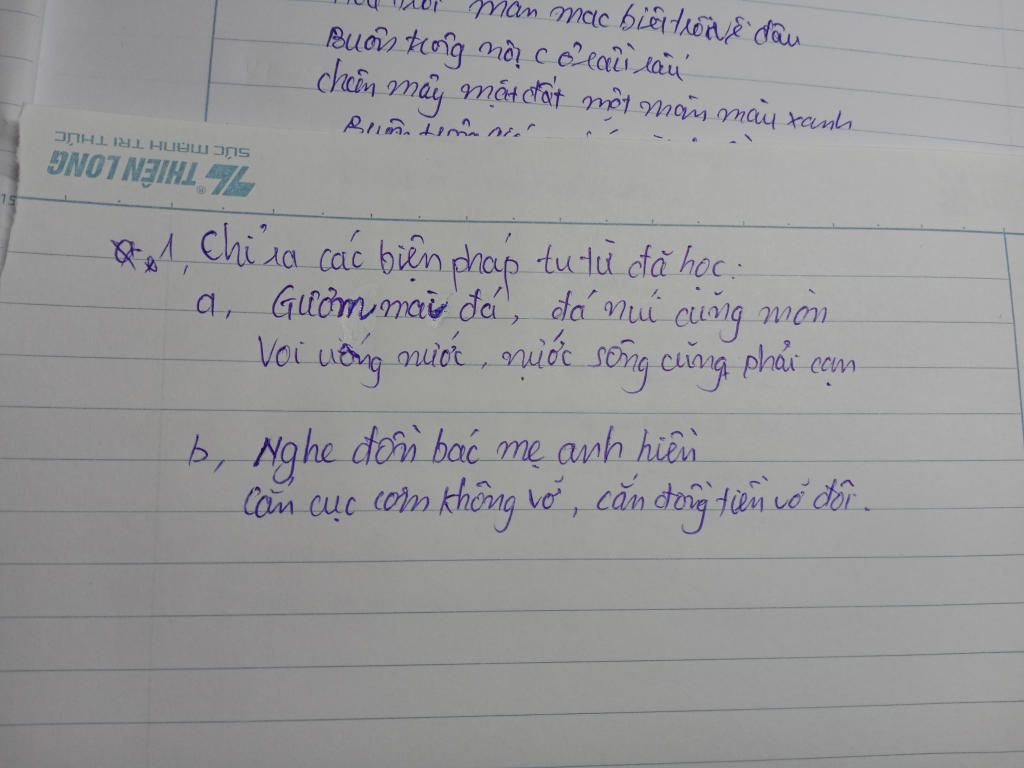 man mac biết trôi về đâu
Buồn trông nội cỏ rầu rầu
chân mây mặt đất một màn màu xanh
SỨC MẠNH TRI THỨC
THIÊN LONG
15
1, Chỉ ra các biện pháp tu từ đã học:
a, Gươm mài đá, đá núi cũng mòn
Voi uống nước, nước sông cũng phải cạn
b, Nghe đồn bác mẹ anh hiền
Cắn cục cơm không vỡ, cắn đồng tiền vỡ đôi.